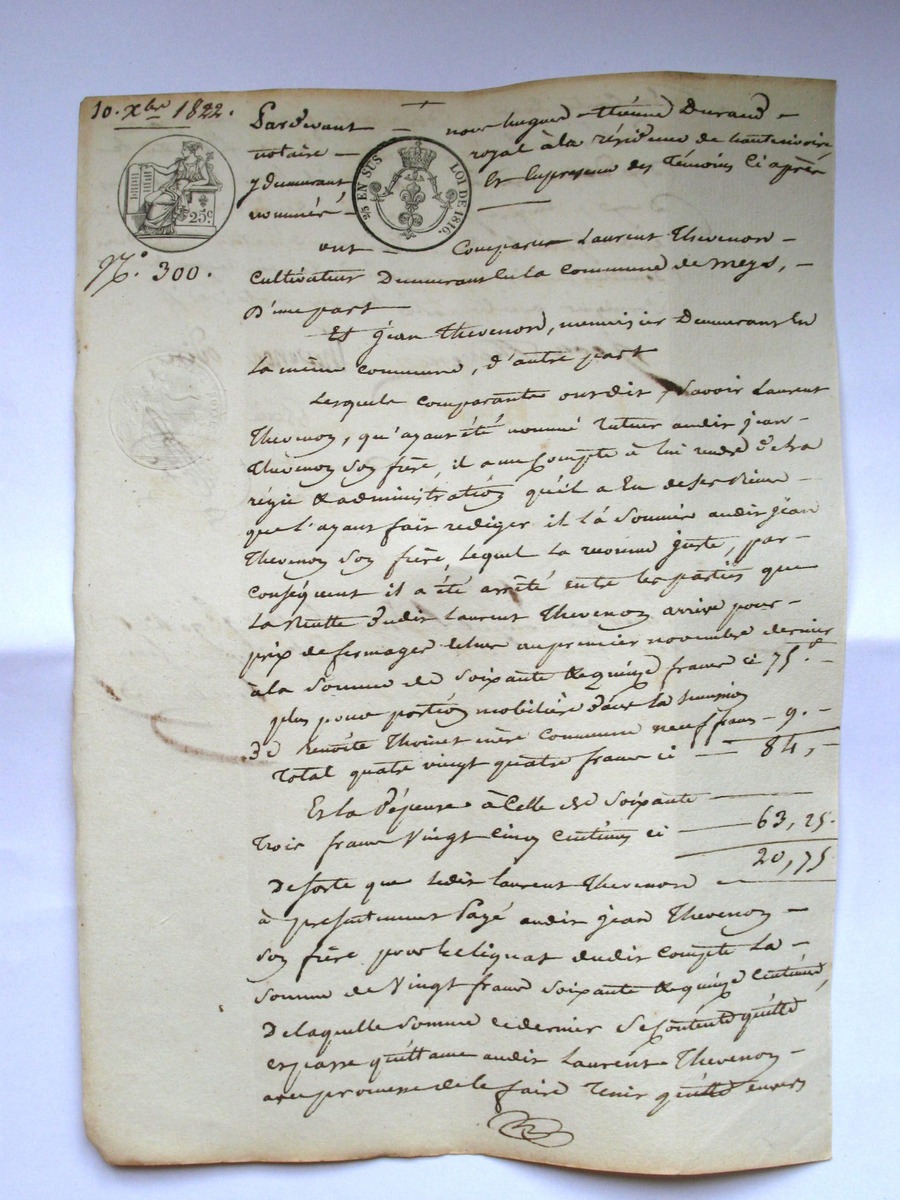 10. Xbre 1822.
25c.
25 EN SUS LOI DE 1816.
No. 300.
Pardevant nous hugues Etienne Durand
notaire royal à la résidence de hauterivoire
y demeurant Et En presence des Témoins ci après
nommés
ont Comparu Laurent Thevenon
Cultivateur Demeurant En la commune de meys,
D'une part
Et jean Thevenon, menuisier Demeurant En
La même commune, d'autre part
Lesquels comparants ont dit, Savoir Laurent
Thevenon, qu'ayant été nommé tuteur audit jean
Thevenon son frère, il a un Compte à lui rendre de la
régie & administration qu'il a Eu de ses Biens
que l'ayant fait rediger il l'a Soumis audit jean
Thevenon son frère, lequel l'a reconnu juste, par
Conséquent il a été arrêté entre les parties que
La Recette dudit Laurent Thevenon arrive pour
prix de fermages échus au premier novembre dernier
à la Somme de Soixante & quinze francs ci 75.
plus pour portion mobilière dans la succession
De Benoite Thoinet mère commune neuf francs 9.
Total quatre vingt quatre francs ci 84,
Et la Dépense à Celle de Soixante
Trois francs Vingt Cinq Centimes ci 63,25.
20,75
De sorte que ledit Laurent Thevenon
à présentement Payé audit jean Thevenon
son frère pour le reliquat dudit compte La
Somme de Vingt francs Soixante & quinze Centimes,
De laquelle Somme ce dernier Se Contente quitte
et passe quittance audit Laurent Thevenon
avec promesse de le faire Tenir quitte envers